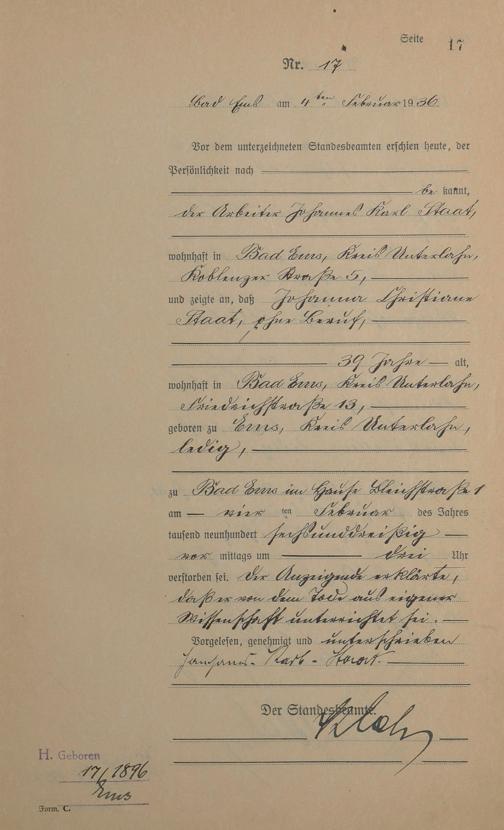 Seite 17
Nr. 17
Bad Ems am 4ten Februar 1936
Vor dem unterzeichneten Standesbeamten erschien heute, der
Persönlichkeit nach
bekannt,
der Arbeiter Johannes Karl Staat,
wohnhaft in Bad Ems, Kreis Unterlahn,
Koblenzer Straße 5,
und zeigte an, daß Johanna Christiane
Staat, ohne Beruf,
39 Jahre alt,
wohnhaft in Bad Ems, Kreis Unterlahn,
Friedrichstraße 13,
geboren zu Ems, Kreis Unterlahn,
ledig,
zu Bad Ems im Hause Bleichstraße 1
am vier ten Februar des Jahres
tausend neunhundert sechsunddreißig
vor mittags um drei Uhr
verstorben sei. Der Anzeigende erklärte,
daß er von dem Tode aus eigener
Wissenschaft unterrichtet sei.
Vorgelesen, genehmigt und unterschrieben
Karl Staat
Der Standesbeamte.
H. Geboren
17/1896
Ems
Form. C.